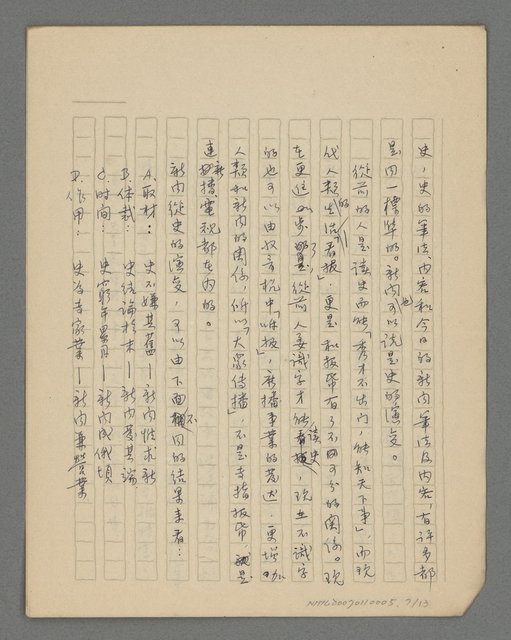 史,史的筆法、內容和今日的新聞筆法及內容,有許多都
是同一標準的。新聞也可以說是史的演變。
從前的人是讀史而能「秀才不出門,能知天下事」,而現
代人類的生活「看報」,更是和報帶有了不可分的關係。現
在更進一步了,從前人要識字才能讀史,現在不識字
的也可以由收音機中「聽報」,廣播事業的發達,更增加
人類和新聞的關係,所以「大眾傳播」,不是專指報帶
連新播電視都在內的。
新聞從史的演變,可以由下面不同的結果來看:
A.取材: 史不嫌其舊—新聞惟求新
B.体裁: 史結論於末—新聞發其端
C.时间: 史窮年累月—新聞成俄頃
D.作用: 史為專家業—新聞兼營業
NMTL20070110005. 7/13